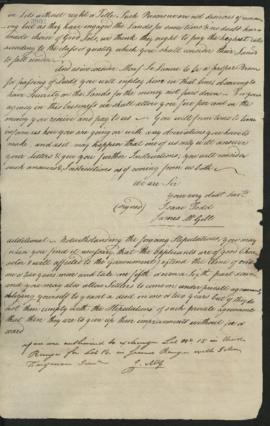 on Lots without a Title. Such Persons are not deserving of an
nity but as they have enjoyed the Lands for some time & no doubt have
made choice of Good Lots, we think they ought to pay the highest rate
according to the class of quality which you shall consider these Lands
to fall under.
And as we consider Mons. La Lanne to be a proper Person
for passing of Deeds you will employ him in that line, drawing to
have security on the Lands for the money not paid down. For your
agency in this business we shall allow you five per cent on the
money you receive and pay to us. You will from time to time
inform us how you are going on with any observations you have to
make, and as it may happen that one of us only will answer
your Letters & give you further Instructions, you will consider
such answers & Instructions as if coming from us both.
We are Sir
Your very obedt. Servts.
(signed) Isaac Todd
James McGill
additional. Notwithstanding the foregoing stipulations, you may
when you find it necessary, that the applicants are of good Char
and well affected to the government, extend the Term of credit
one or two years more and take one fifth or even a sixth part down
and you may also allow Settlers to come in under private agreements
obliging yourself to grant a deed in one or two years but if they do
not then comply with the stipulations of such private agreements
that then they are to give up their improvements without
ward
you are authorised to exchange Lot No. 15 in third
Range for Lot 12 in second Range with John
J. McG